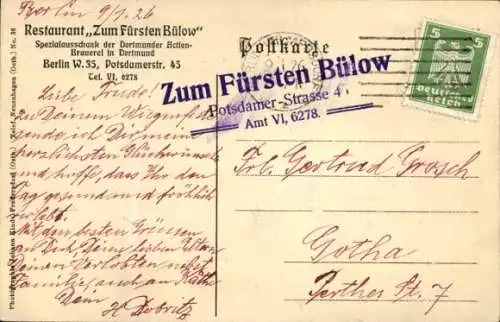 Berlin 9/1. 26
Restaurant „Zum Fürsten Bülow"
Spezialausschank der Dortmunder Actien-
Brauerei in Dortmund
Berlin W. 35, Potsdamerstr. 45
Tel. VI, 6278
Postkarte
Zum Fürsten Bülow
Potsdamer-Strasse 4
Amt VI, 6278.
5 5
Deutsches
Reich
Liebe Trude!
zu Deinem Wiegenfeste
sende ich Dir meine
herzlichsten Glückwünsche
und hoffe, dass Ihr den
Tag gesund und fröhlich
verlebt.
Mit den besten Grüssen
an Dich, Deine lieben Eltern
Deinen Verlobten nebst
Familie, auch an Käthe
Dein
H Dobritz
Frl. Gertrud Grosch
Gotha
Perthes Str. 7